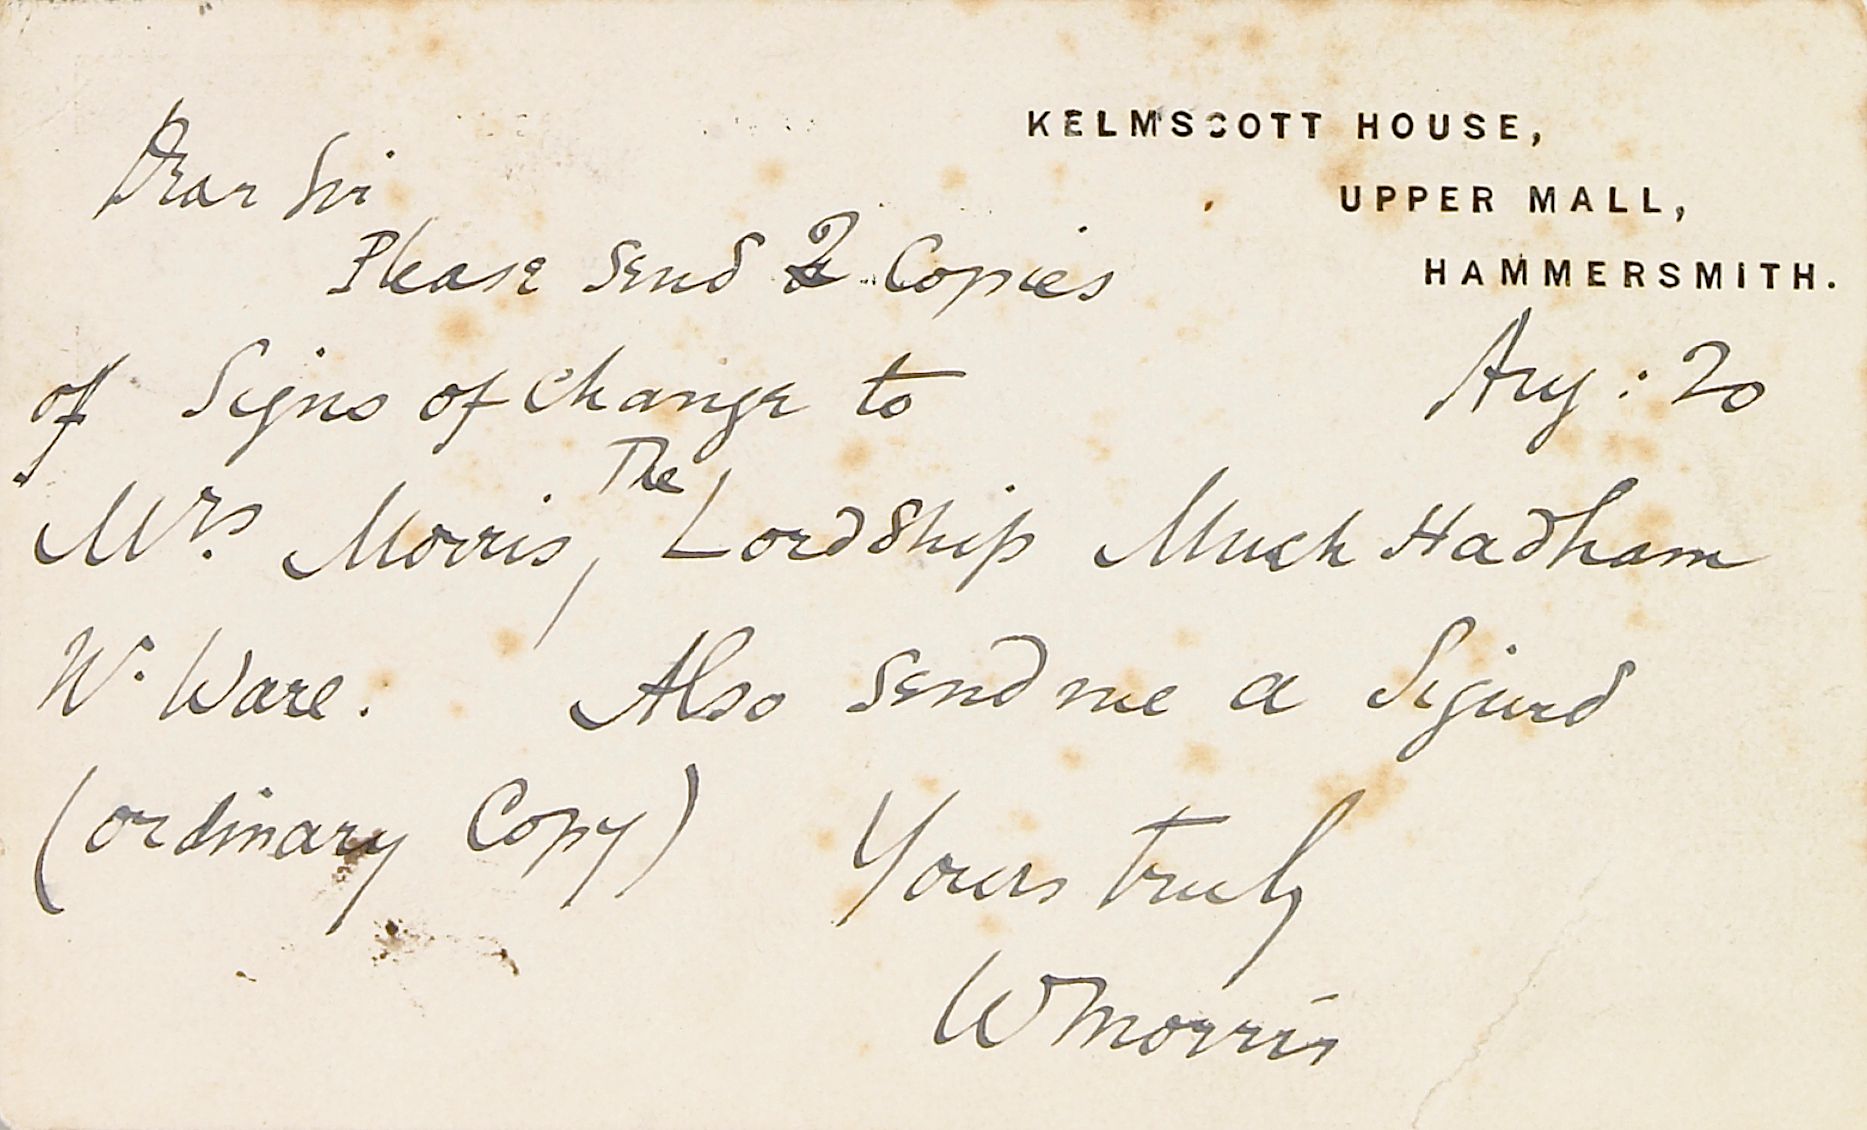 KELMSCOTT HOUSE,
UPPER MALL,
HAMMERSMITH.
Aug: 20
Dear Sir
Please send 2 Copies
of Signs of Change to
Mrs. Morris, The Lordship Much Hadham
W. Ware. Also send me a Sigurd
(ordinary Copy) Yours truly
WMorris